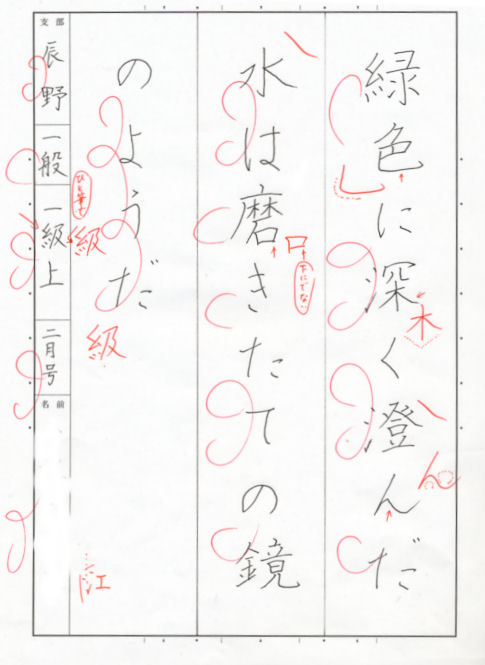 緑色に深く澄んだ
水は磨きたての鏡
のようだ
支部
辰野
一般
一級上
二月号
名前
木
ん
口
下にでない
ひと筆で
級
級